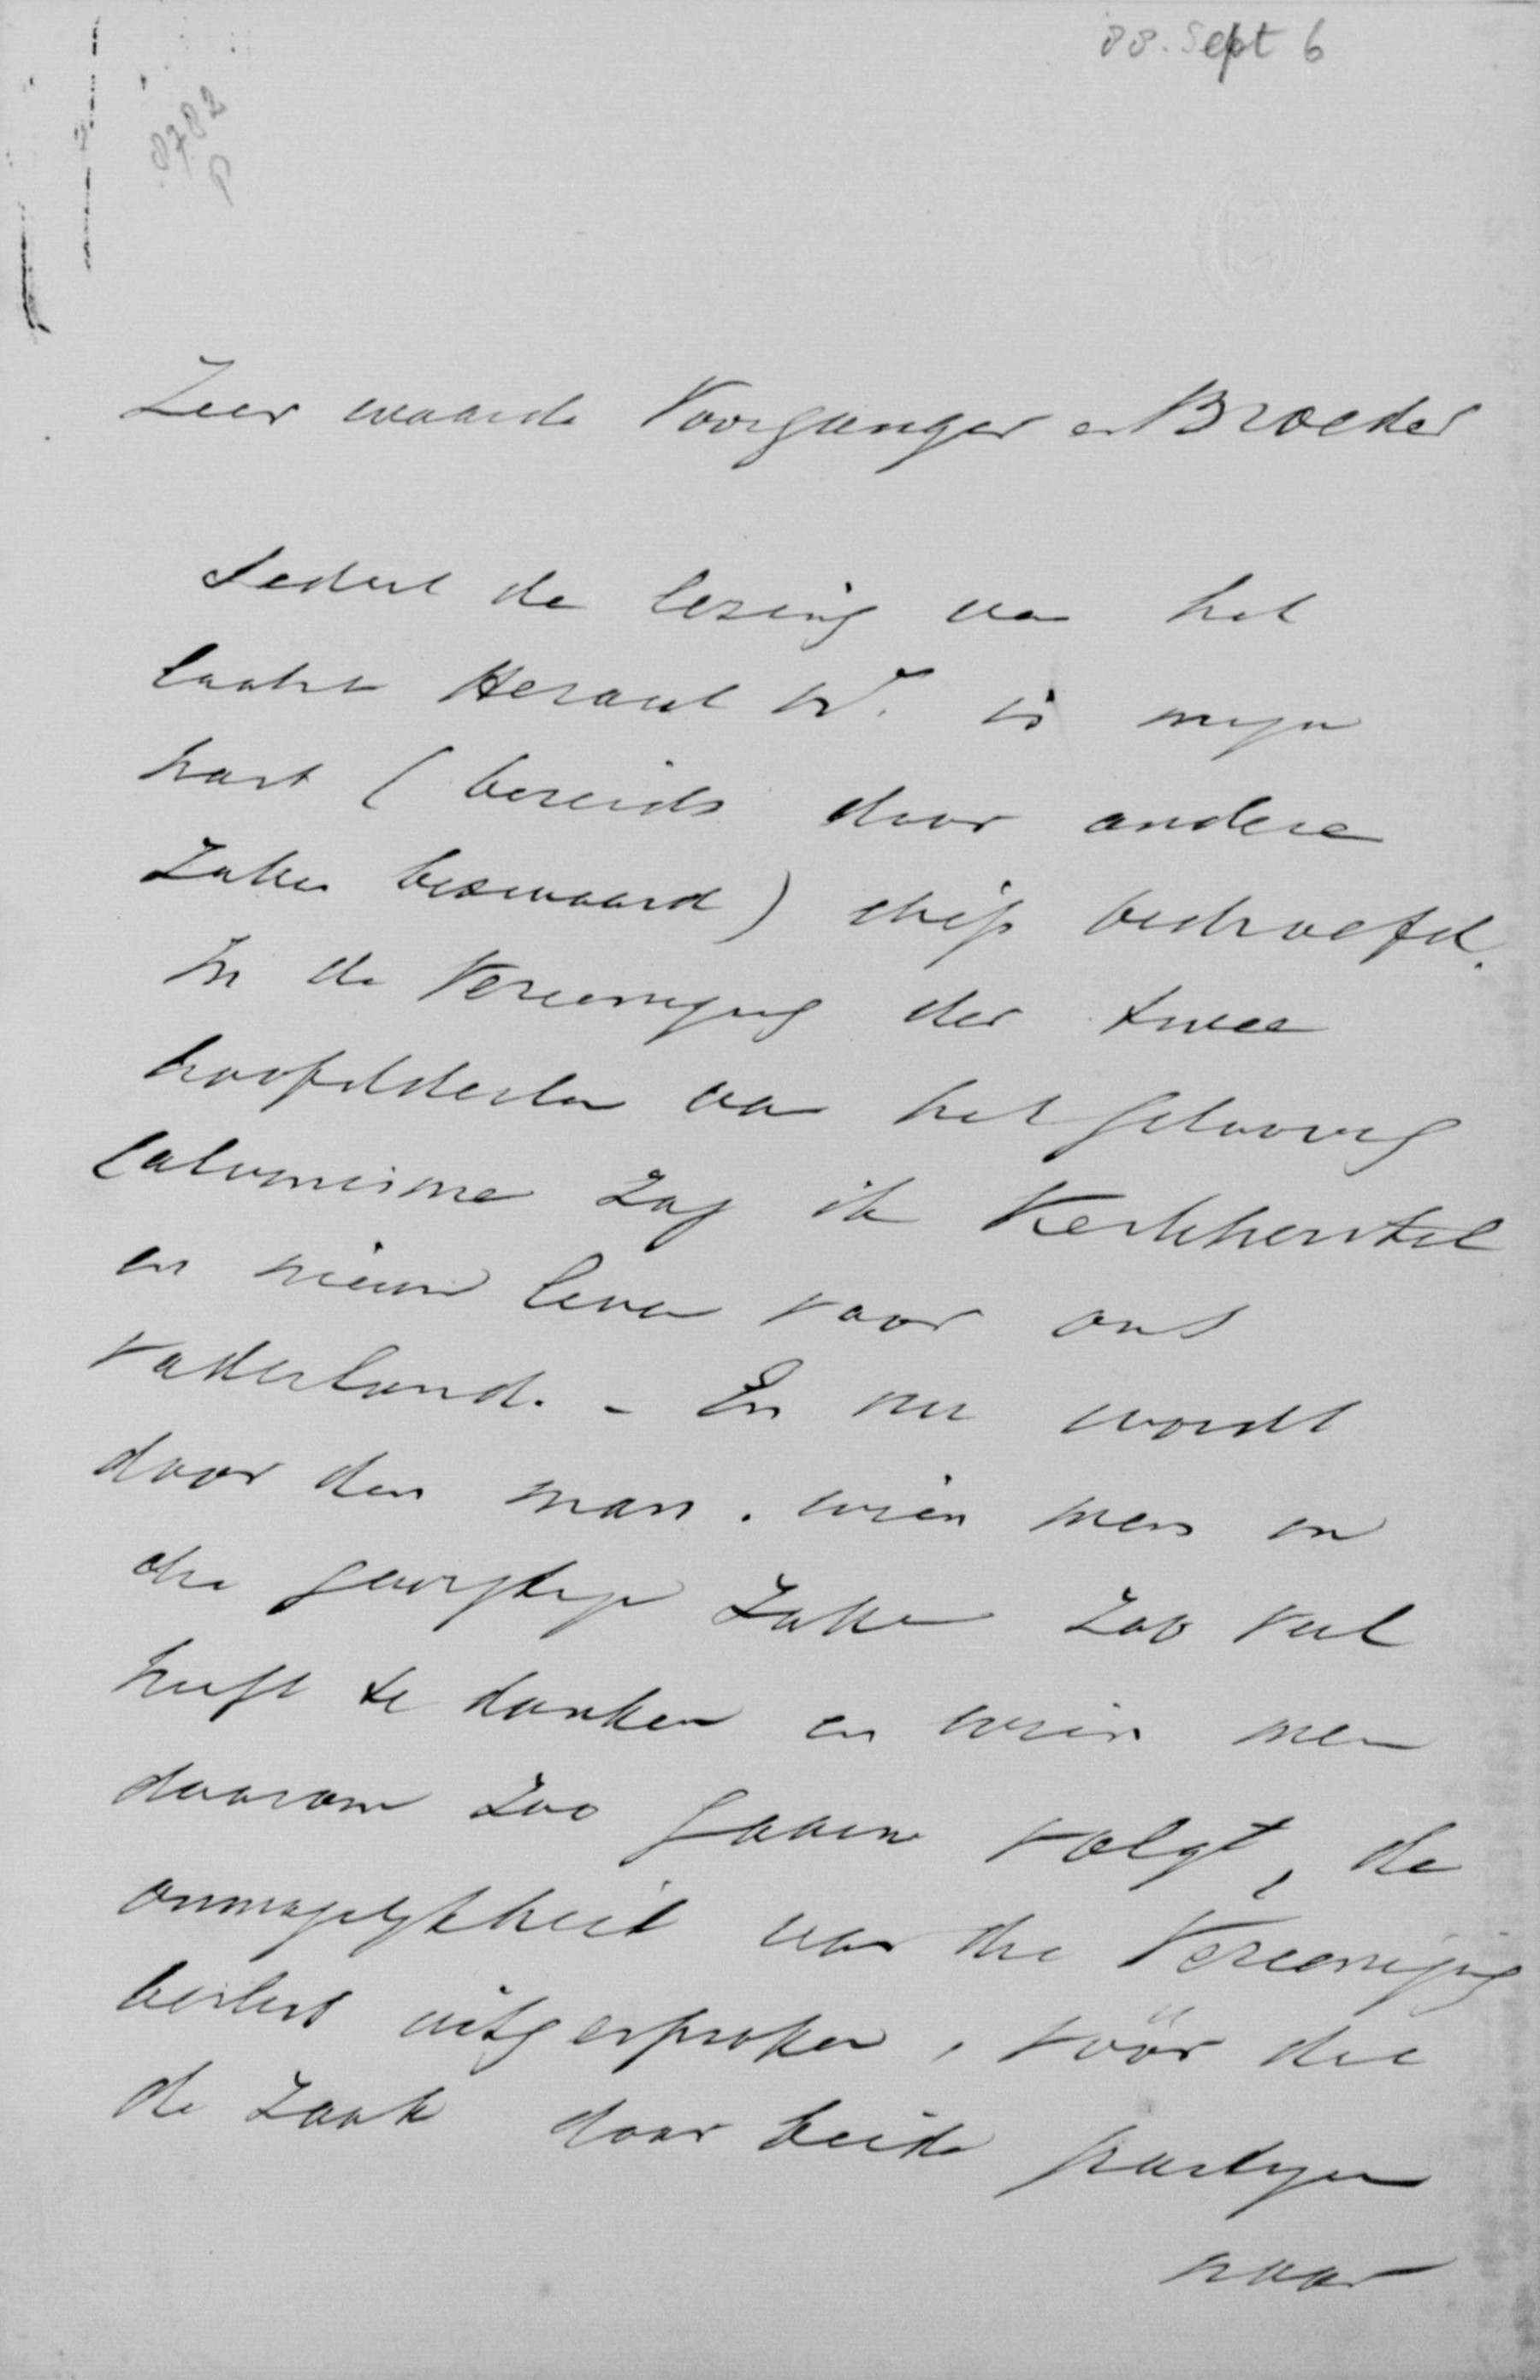 88. Sept 6
8782
P
Zeer waarde Voorganger en Broeder
Sedert de lezing van het
laatste Heraut Nr. is mijn
hart (bereids door andere
zaken bezwaard) diep bedroefd.
In de Vereeniging der twee
hoofddeelen van het geloovig
Calvinisme zag ik Kerkherstel
en nieuw leven voor ons
Vaderland. - En nu wordt
door den man, wien men in
die gewigtige zaken zoo veel
heeft te danken en wien men
daarom zoo gaarne volgt, de
onmogelijkheid van die Vereeniging
beslist uitgesproken, vóór dat
de zaak door beide partijen
naar